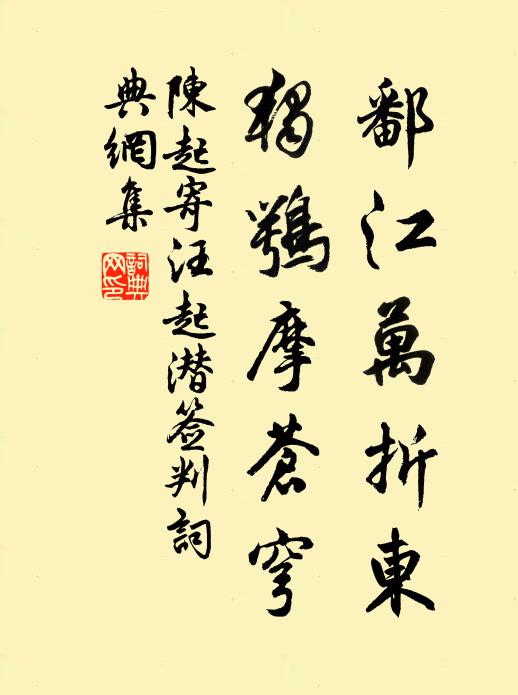 鄱江萬折東
獨鶚摩蒼穹
陳起寄汪起潛簽判詞
典網集
詞典網印